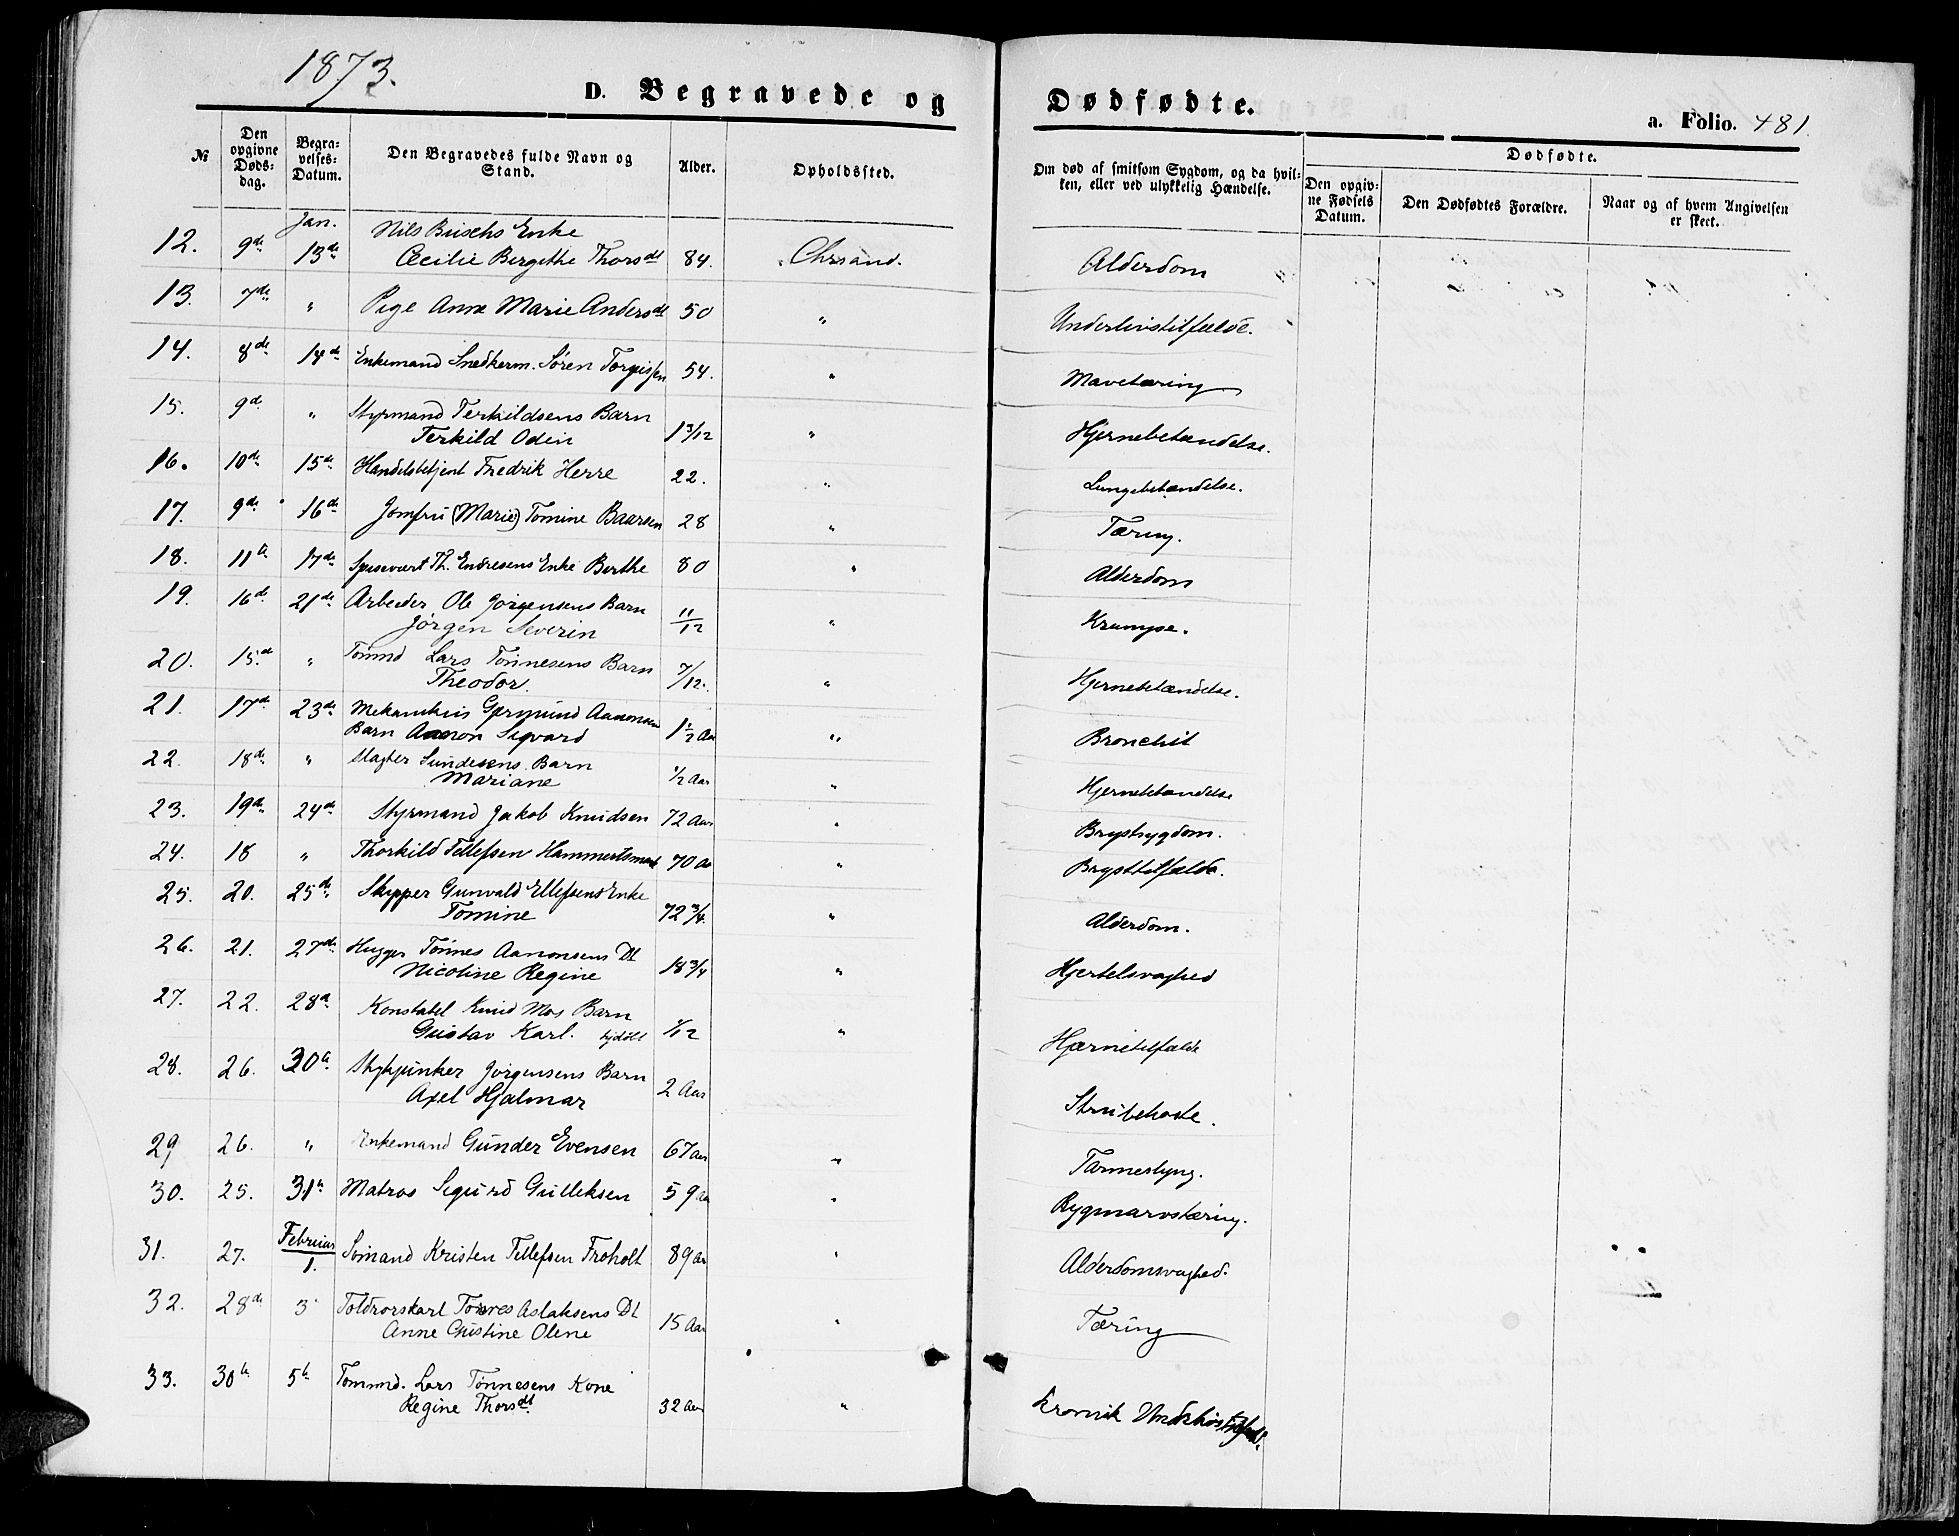 1873.
D. Begravede og Dødfødte.
a. Folio. 481.
№ Den opgivne Døds-dag. Begra-velses-Datum. Den Begravedes fulde Navn og Stand. Alder. Opholdssted. Om død af smitsom Sygdom, og da hvil-ken, eller ved ulykkelig Hændelse. Dødfødte.
Den opgiv-ne Fødsels Datum. Den Dødfødtes Forældre. Naar og af hvem Angivelsen er skeet.
Jan. Nils Buschs Enke
12. 9de 13de Cecilie Bergithe Thorsdt 84. Chrsand. Alderdom
13. 7de " Pige Anne Marie Andersdt 50 " Underlivstilfælde.
14. 8de 14de Enkemand Snedkerm. Søren Torgussen 54. " Mavetæring
15. 9de " Styrmand Terkildsens Barn
Terkild Odin 1 3/12 " Hjernebetændelse.
16. 10de 15de Handelsbetjent Fredrik Herre 22. " Lungebetændelse.
17. 9de 16de Jomfru (Marie) Tomine Baarsen 28 " Tæring.
18. 11te 17de Spisevært Th. Endresens Enke Berthe 80 " Alderdom
19. 16de 21de Arbeider Ole Jørgensens Barn
Jørgen Severin 11/12 " Krampe.
20. 15de " Tømmd Lars Tønnesens Barn
Theodor. 7/12. " Hjernebetændelse.
21. 17de 23de Mekanikus Germund Aanonsen
Barn Aanon Sigvard 1 1/2 Aar " Bronchit
22. 18de " Slagter Sundesens Barn
Mariane 1/2 Aar " Hjernebetændelse
23. 19de 24de Styrmand Jakob Knudsen 72 Aar " Brystsygdom.
24. 18 " Thorkild Tellefsen 70 Aar " Brysttilfælde.
25. 20. 25de Skipper Gunvald Ellefsens Enke
Tomine 72 3/4. " Alderdom.
26. 21. 27de Hugger Tønnes Aanonsens Dt
Nicoline Regine 18 3/4 " Hjertesvaghed
27. 22. 28de Konstabel Knud Mos Barn
Gustav Karl. 1/12 " Hjernetilfælde
28. 26. 30te Stykjunker Jørgensens Barn
Axel Hjalmar 2 Aar Strubehoste.
29 26. " Enkemand Gunder Evensen 67 Aar " Tarmeslyng.
30. 25. 31te Matros Sigurd Gulleksen 59 Aar " Rygmarvstæring.
Februar
31. 27. 1. Sømand Kristen Tellefsen Froholt 89 Aar " Alderdomsvaghed.
32. 28de 3 Toldrorskarl Tønnes Aslaksens Dt
Anne Gustine Oline 15 Aar " Tæring
33. 30te 5te Tømmd. Lars Tønnesens Kone
Regine Thorsdt. 32 Aar " Kronisk